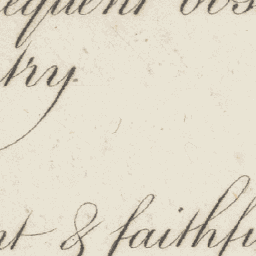 equent obs
try.
nt & faithfu